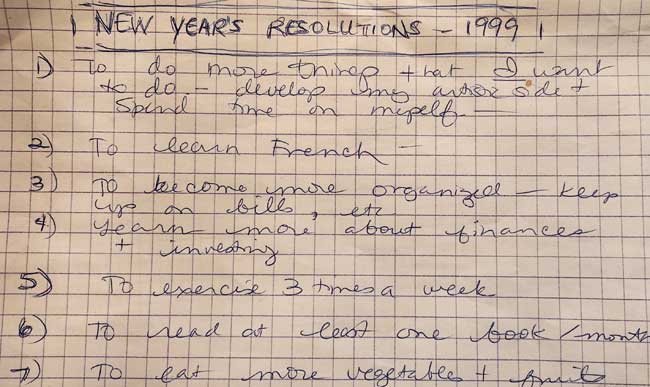 NEW YEAR'S RESOLUTIONS - 1999
1) To do more things that I want
to do - develop my artistic side +
Spend time on myself.
2) To learn French -
3) To become more organized - keep
up on bills, etc
4) Learn more about finances
+ investing
5) To exercise 3 times a week
6) To read at least one book / month
7) To eat more vegetables + fruits